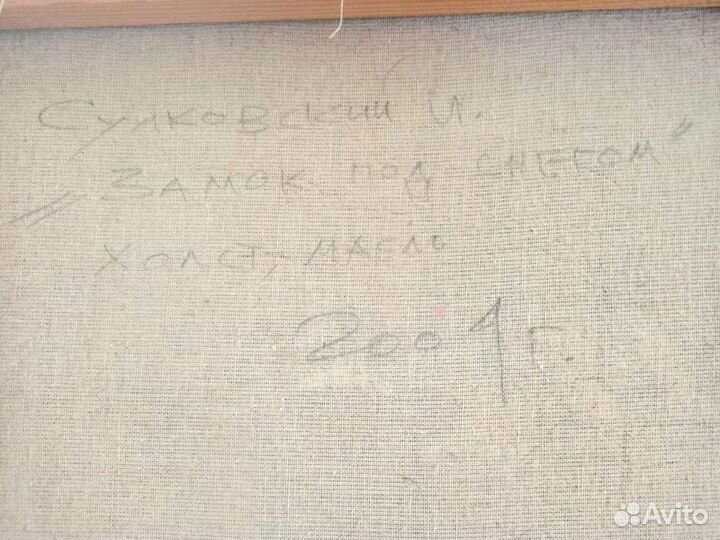 Сулковский И.
„Замок под снегом"
холст, масло
2001 г.
Avito